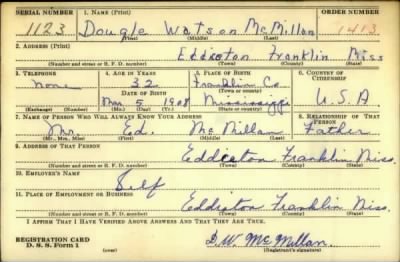 SERIAL NUMBER 1. NAME (Print) ORDER NUMBER
1123 Dougle Watson McMillan 1413
(First) (Middle) (Last)
2. ADDRESS (Print)
Eddiceton Franklin Miss
(Number and street or R. F. D. number) (Town) (County) (State)
3. TELEPHONE 4. AGE IN YEARS 5. PLACE OF BIRTH 6. COUNTRY OF CITIZENSHIP
none 32 Franklin Co
DATE OF BIRTH (Town or county)
Mar 5 1908 Mississippi U.S.A
(Exchange) (Number) (Mo.) (Day) (Yr.) (State or country)
7. NAME OF PERSON WHO WILL ALWAYS KNOW YOUR ADDRESS 8. RELATIONSHIP OF THAT PERSON
Mr. Ed. McMillan Father
(Mr., Mrs., Miss) (First) (Middle) (Last)
9. ADDRESS OF THAT PERSON
Eddiceton Franklin Miss.
(Number and street or R. F. D. number) (Town) (County) (State)
10. EMPLOYER'S NAME
Self
11. PLACE OF EMPLOYMENT OR BUSINESS
Eddiceton Franklin Miss.
(Number and street or R. F. D. number) (Town) (County) (State)
I AFFIRM THAT I HAVE VERIFIED ABOVE ANSWERS AND THAT THEY ARE TRUE.
REGISTRATION CARD D.W. McMillan
D. S. S. Form 1 (over) (Registrant's signature)